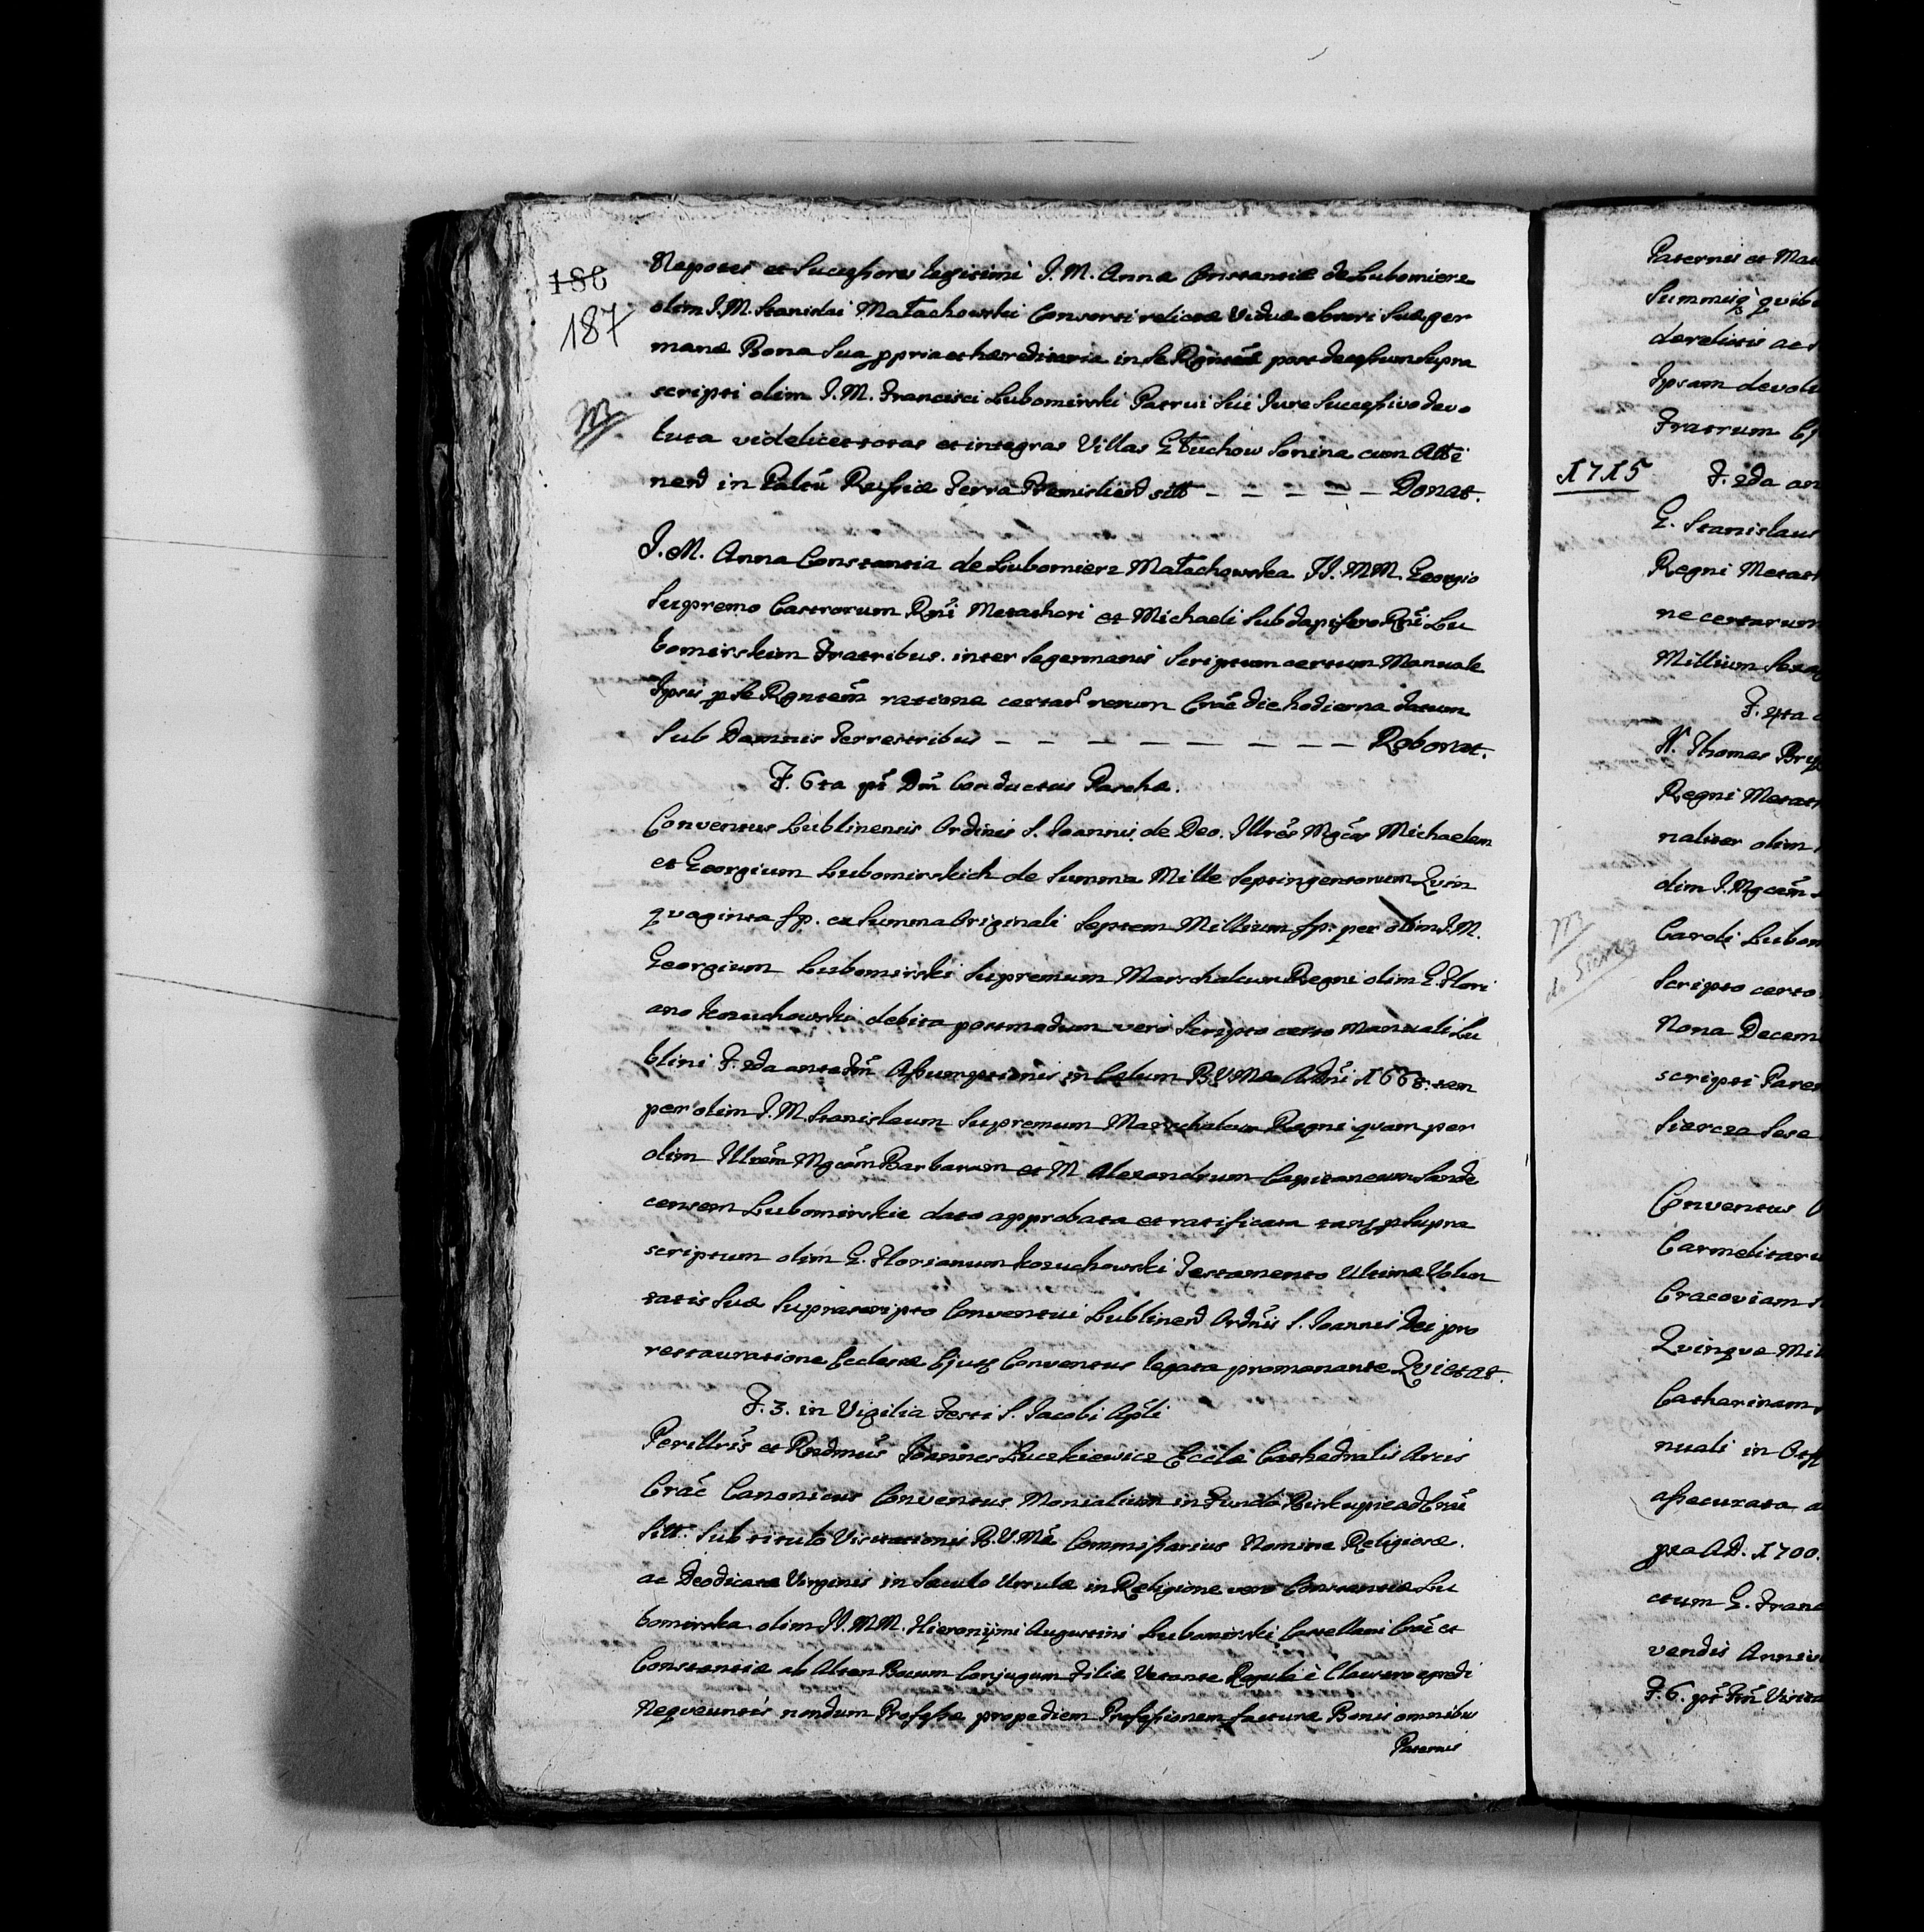 186
187
Nepotes et Successores legitimi I. M. Anna Constantiæ de Lubomierz
olim I. M. Stanislai Małachowski Consorti relictæ Viduæ Sorori Suæ ger
manæ Bona Sua ppria et hæreditaria in Se Rgntēs post decessum Supra
scripti olim I. M. Francisci Lubomirski Patrui Sui Jure Successivo devo
luta videlicet totas et integras Villas Głuchow Sonina cum Atti
nen in Palnū Russiæ Terra Premislien sitt – – – – – Donat.
I. M. Anna Constantia de Lubomierz Małachowska II. MM. Georgio
Supremo Castrorum Rgni Metathori et Michaeli Subdapifero Rgni Lu
bomirskim Fratribus inter Se germanis Scriptum certum Manuale
Ipsis p Se Rgntēm ratione certar rerum Crac die hodierna datum
Sub Damnis Terrestribus – – – – – – – – Roborat.
F. 6ta pt Dm Conductus Paschæ.
Conventus Lublinensis Ordinis S. Joannis de Deo. Illres Mgcos Michaelem
et Georgium Lubomirskich de Summa Mille Septingentorum Quin
quaginta fp. ex Summa Originali Septem Millium fp. per olim I. M.
Georgium Lubomirski Supremum Marschalcum Regni olim G. Flori
ano Kozuchowski debita postmodum vero Scripto certo Manuali Lu
blini F. 2da ante Fm Assumptionis in Cælum B.V.Mæ A Dni 1668. tam
per olim I. M. Stanislaum Supremum Marschalcum Regni quam per
olim Illrem Mgcam Barbaram et M. Alexandrum Capitaneum Sande
censem Lubomirskie dato approbata et ratificata tanq p Supra
scriptum olim G. Florianum Kozuchowski Testamento Ultimæ Volun
tatis Suæ Suprascripto Conventui Lublinen Ordnis S. Joannis Dei pro
restauratione Ecclesiæ Ejusq Conventus legata promanante Quietat.
F. 3. in Vigilia Festi S. Jacobi Apli
Perillris et Rndmus Joannes Łuczkiewicz Ecclæ Cathedralis Arcis
Crac Canonicus Conventus Monialium in Fundo Biskupie ad Crac
Sitt. Sub titulo Visitationis B.V.Mæ Commissarius Nomine Religiosæ
ac Deo dicatæ Virginis in Sæculo Ursulæ in Religione vero Constantiæ Lu
bomirska olim II. MM. Hieronijmi Augustini Lubomirski Castellani Crac et
Constantiæ ab Alten Bocum Conjugum Filiæ Vetante Regula è Claustro egredi
Nequeuntis nondum Professæ propediem Professionem facturæ Bonis omnibus
Paternis
Paternis et Mat
Summisq quibu
derelictis ac
Ipsam devolu
Fratrum
1715
F. 2da an
G. Stanislaus
Regni Metat
ne certarum
Millium Sexa
F. 4ta
N. Thomas Bry
Regni Metat
naliter olim
olim I. Mgcam
Caroli Lubom
do Siercz
Scripto certo
Nona Decem
scripti Paren
Siercza Sese
Conventus
Carmelitaru
Cracoviam
Quinque Mil
Catharinam
nuali in
assecurata a
pta AD. 1700.
ctum G. Franc
vendis Anniv
F. 6. pt Fm Visita